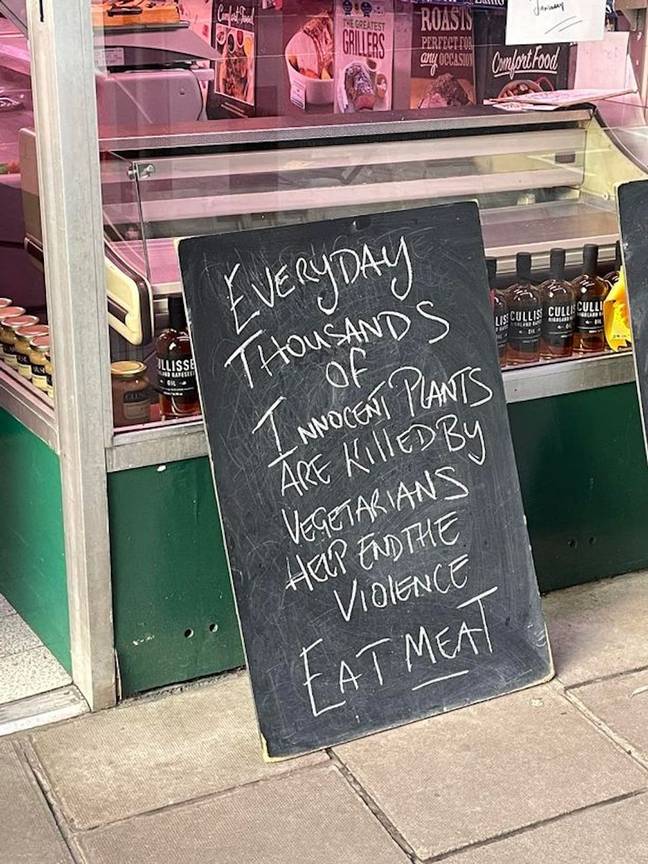 Comfort Food
THE GREATEST
GRILLERS
ROASTS
PERFECT FOR
any OCCASION
Comfort Food
January
EVERYDAY
THOUSANDS
OF
INNOCENT PLANTS
ARE KILLED BY
VEGETARIANS
HELP END THE
VIOLENCE
EAT MEAT
CULLISSE
OIL
CULLISSE
HIGHLAND
OIL
CULLI
OIL
CULL
OIL